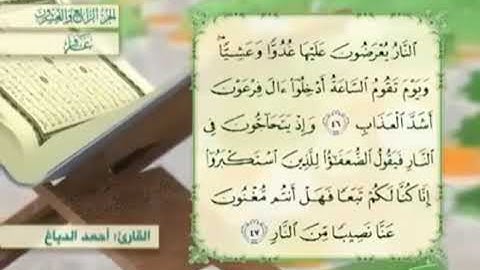 الجزء الرابع والعشرون
غافر
النَّارُ يُعْرَضُونَ عَلَيْهَا غُدُوًّا وَعَشِيًّا ۖ
وَيَوْمَ تَقُومُ السَّاعَةُ أَدْخِلُوٓا۟ ءَالَ فِرْعَوْنَ
أَشَدَّ الْعَذَابِ ﴿٤٦﴾ وَإِذْ يَتَحَآجُّونَ فِى
النَّارِ فَيَقُولُ الضُّعَفَٰٓؤُا۟ لِلَّذِينَ اسْتَكْبَرُوٓا۟
إِنَّا كُنَّا لَكُمْ تَبَعًا فَهَلْ أَنتُم مُّغْنُونَ
عَنَّا نَصِيبًا مِّنَ النَّارِ ﴿٤٧﴾
القارئ: أحمد الدباغ